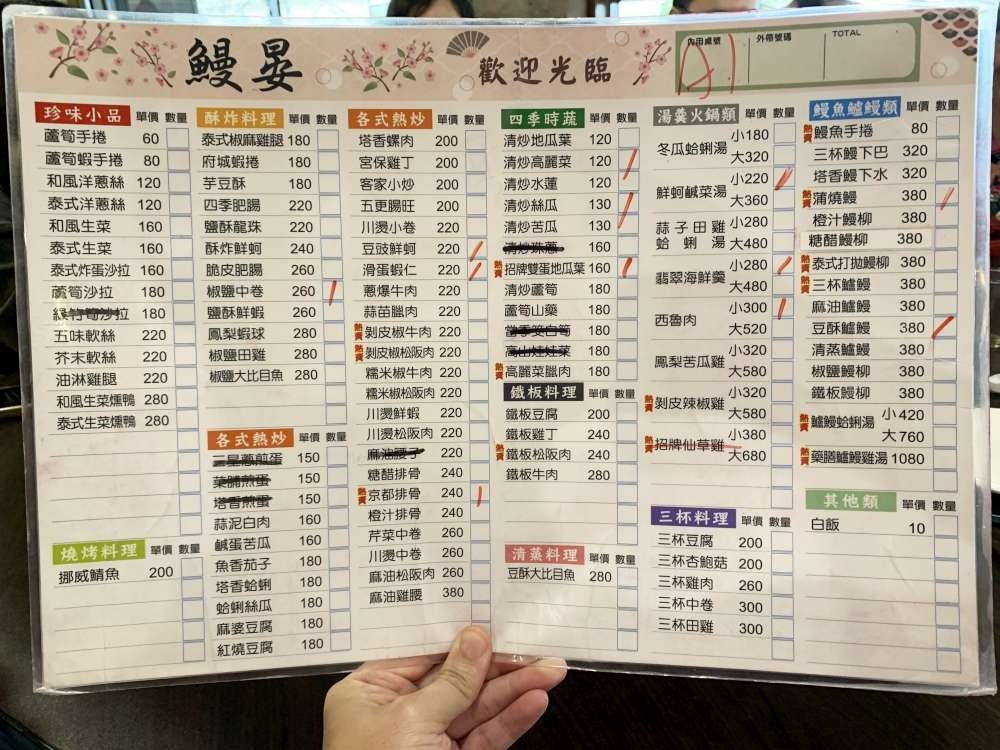 鰻晏
歡迎光臨
內用桌號 外帶號碼 TOTAL
A1
珍味小品 單價 數量
蘆筍手捲 60
蘆筍蝦手捲 80
和風洋蔥絲 120
泰式洋蔥絲 120
和風生菜 160
泰式生菜 160
泰式炸蛋沙拉 160
蘆筍沙拉 180
綠竹筍沙拉 180
五味軟絲 220
芥末軟絲 220
油淋雞腿 220
和風生菜燻鴨 280
泰式生菜燻鴨 280
燒烤料理 單價 數量
挪威鯖魚 200
酥炸料理 單價 數量
泰式椒麻雞腿 180
府城蝦捲 180
芋豆酥 180
四季肥腸 220
鹽酥龍珠 220
酥炸鮮蚵 240
脆皮肥腸 260
椒鹽中卷 260
鹽酥鮮蝦 260
鳳梨蝦球 280
椒鹽田雞 280
椒鹽大比目魚 280
各式熱炒 單價 數量
三星蔥煎蛋 150
菜脯煎蛋 150
塔香煎蛋 150
蒜泥白肉 160
鹹蛋苦瓜 160
魚香茄子 180
塔香蛤蜊 180
蛤蜊絲瓜 180
麻婆豆腐 180
紅燒豆腐 180
各式熱炒 單價 數量
塔香螺肉 200
宮保雞丁 200
客家小炒 200
五更腸旺 200
川燙小卷 220
豆豉鮮蚵 220
滑蛋蝦仁 220
蔥爆牛肉 220
蒜苗臘肉 220
熱賣 剝皮椒牛肉 220
熱賣 剝皮椒松阪肉 220
糯米椒牛肉 220
糯米椒松阪肉 220
川燙鮮蝦 220
川燙松阪肉 220
麻油腰子 220
糖醋排骨 240
熱賣 京都排骨 240
橙汁排骨 240
芹菜中卷 260
川燙中卷 260
麻油松阪肉 260
麻油雞腰 380
四季時蔬 單價 數量
清炒地瓜葉 120
清炒高麗菜 120
清炒水蓮 120
清炒絲瓜 130
清炒苦瓜 130
清炒珠蔥 160
熱賣 招牌雙蛋地瓜葉 160
清炒蘆筍 180
蘆筍山藥 180
當季筊白筍 180
高山娃娃菜 180
熱賣 高麗菜臘肉 180
鐵板料理 單價 數量
鐵板豆腐 200
鐵板雞丁 240
熱賣 鐵板松阪肉 240
鐵板牛肉 280
清蒸料理 單價 數量
豆酥大比目魚 280
湯羹火鍋類 單價 數量
冬瓜蛤蜊湯 小180 大320
鮮蚵鹹菜湯 小220 大360
蒜子田雞蛤蜊湯 小280 大480
翡翠海鮮羹 小280 大480
西魯肉 小300 大520
鳳梨苦瓜雞 小320 大580
熱賣 剝皮辣椒雞 小320 大580
熱賣 招牌仙草雞 小380 大680
三杯料理 單價 數量
三杯豆腐 200
三杯杏鮑菇 200
三杯雞肉 260
三杯中卷 300
三杯田雞 300
鰻魚鱸鰻類 單價 數量
熱賣 鰻魚手捲 80
三杯鰻下巴 320
塔香鰻下水 320
熱賣 蒲燒鰻 380
橙汁鰻柳 380
糖醋鰻柳 380
熱賣 泰式打拋鰻柳 380
熱賣 三杯鱸鰻 380
麻油鱸鰻 380
熱賣 豆酥鱸鰻 380
清蒸鱸鰻 380
椒鹽鱸鰻 380
鐵板鰻柳 380
熱賣 鱸鰻蛤蜊湯 小420 大760
熱賣 藥膳鱸鰻雞湯 1080
其他類 單價 數量
白飯 10